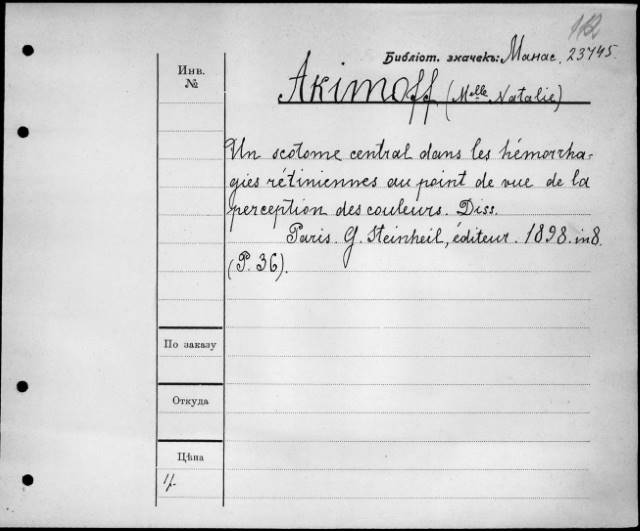 112
Библіот. значекъ: Манас. 23745.
Инв.
№
Akimoff (Melle Natalie)
Un scotome central dans les hémorrha-
gies rétiniennes au point de vue de la
perception des couleurs. Diss.
Paris. G. Steinheil, éditeur. 1898. in 8.
(P. 36).
По заказу
Откуда
Цѣна